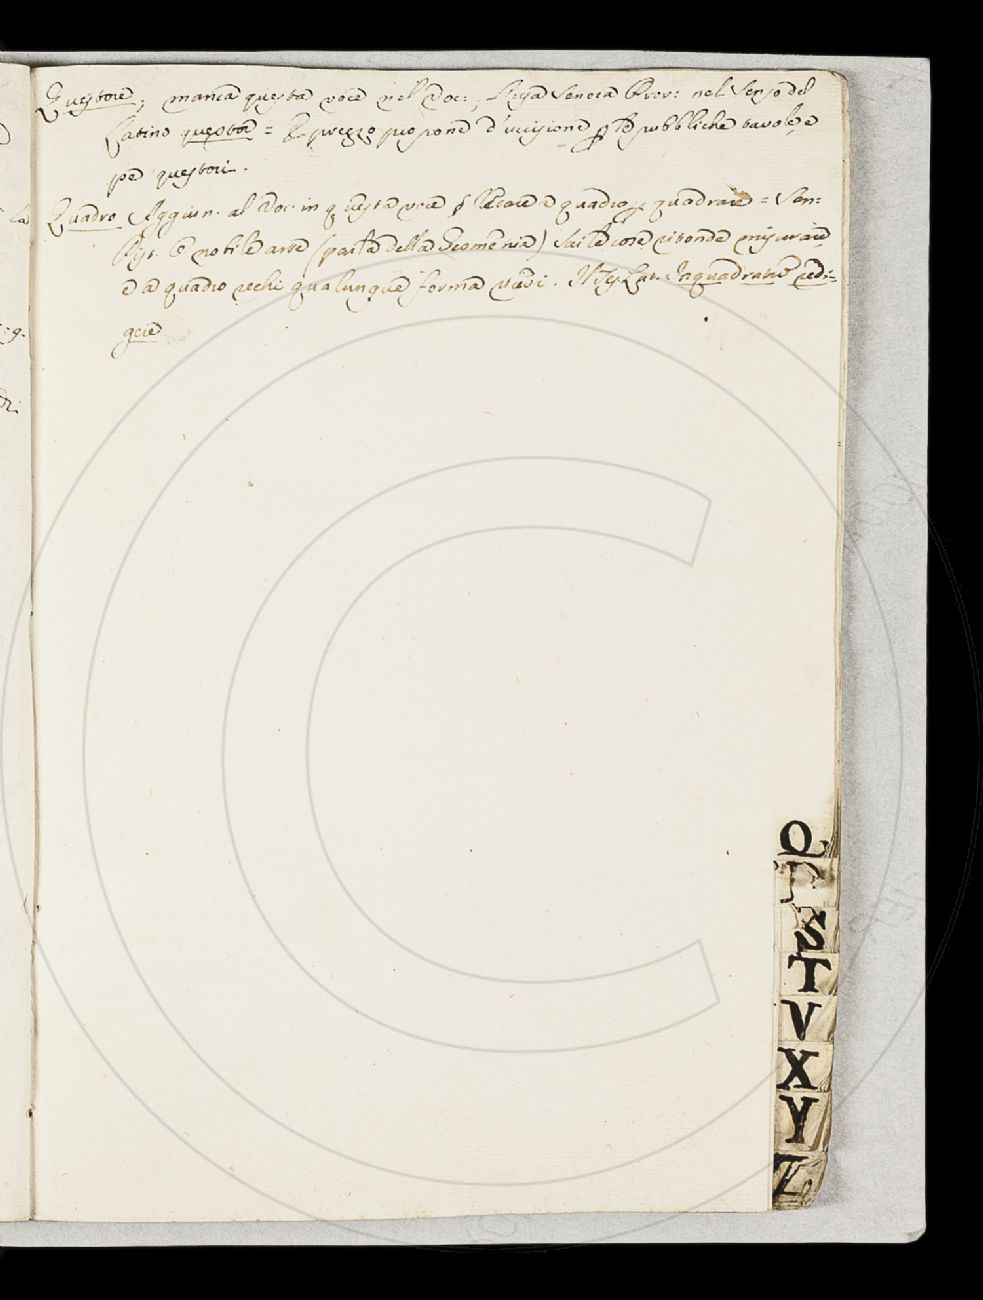 Questore, manca questa voce nel Voc:, Seneca Prov: nel senso del
Latino questor = E prezzo propone d'uccisione p le pubbliche tavole, e
pe questori.
Quadro Aggiun. al Voc. in questa voce p Recare a quadro, p quadrare = Sen:
Pist. O nobile arte (parla della Geometria) sai le cose ritonde misurare,
e a quadro rechi qualunque forma vedi. Il Tes. Lat. In quadratum redi=
gere
g.
Q
S
T
V
X
Y
Z